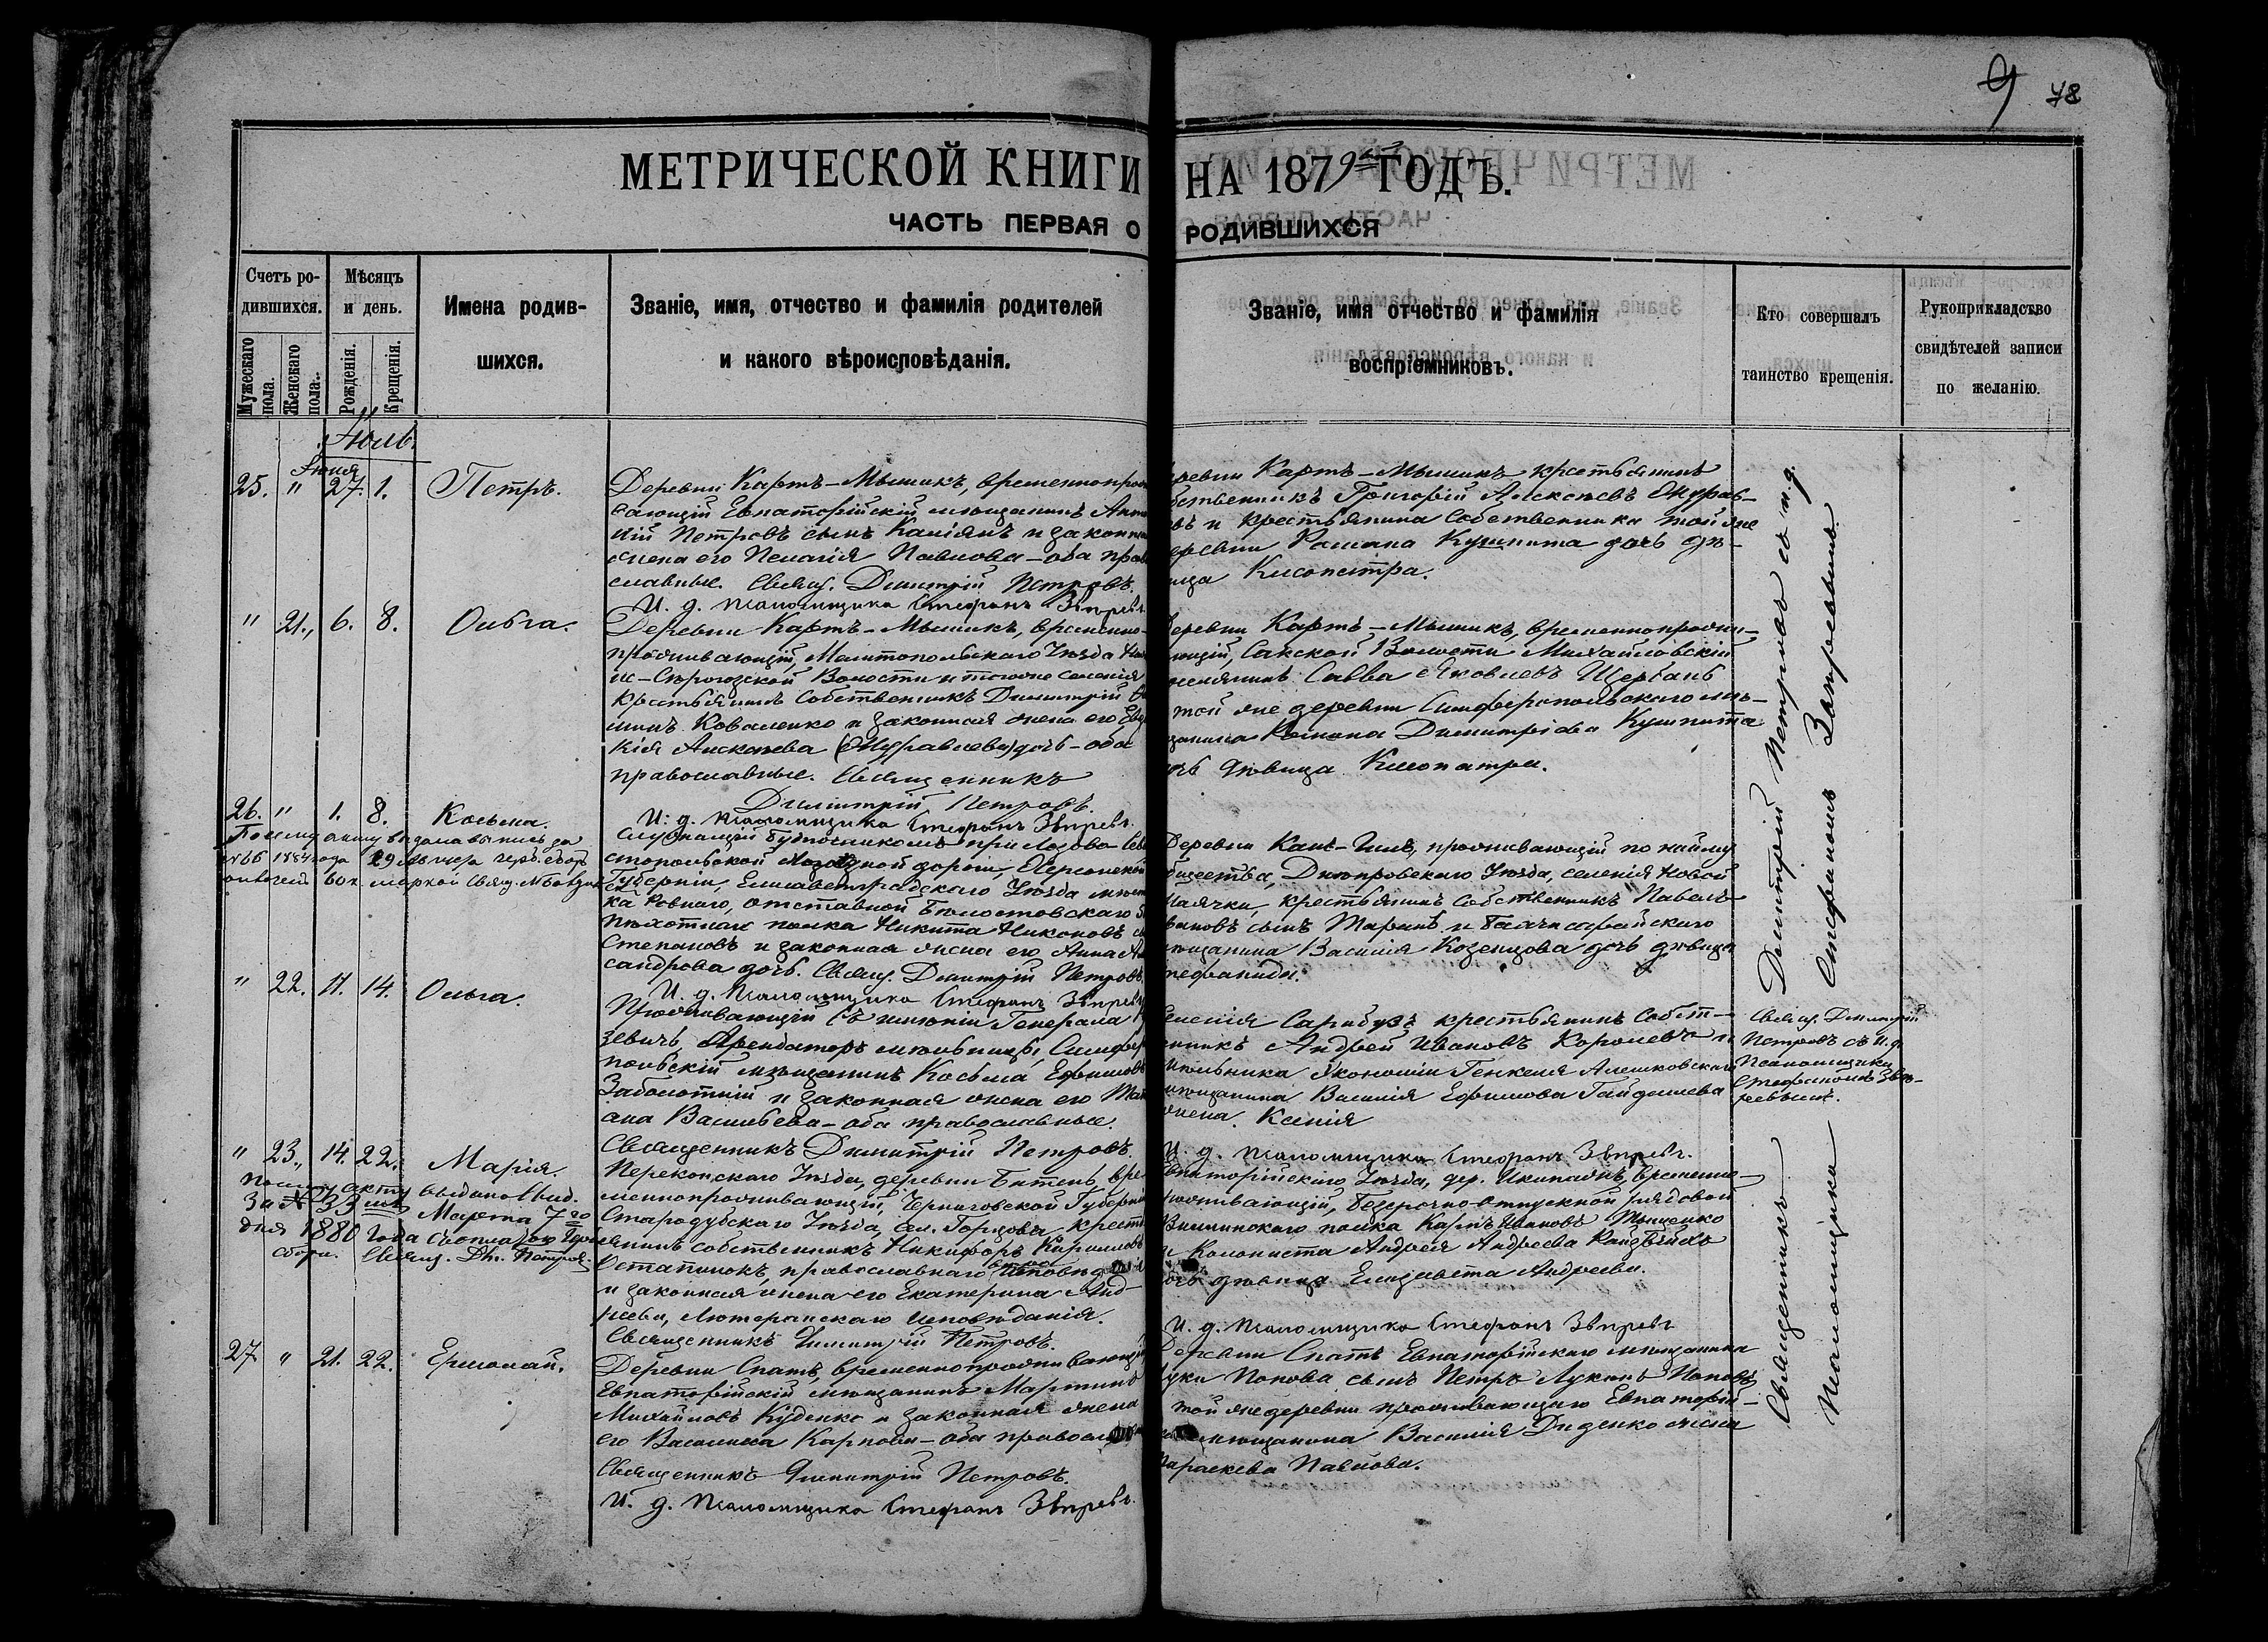 9 78
МЕТРИЧЕСКОЙ КНИГИ НА 1879й ГОДЪ.
ЧАСТЬ ПЕРВАЯ О РОДИВШИХСЯ
Счетъ ро-
дившихся.
Мужескаго пола.
Женскаго пола.
Мѣсяцъ
и день.
Рожденія.
Крещенія.
Имена родив-
шихся.
Званіе, имя, отчество и фамилія родителей
и какого вѣроисповѣданія.
Званіе, имя отчество и фамилія
воспріемниковъ.
Кто совершалъ
таинство крещенія.
Рукоприкладство
свидѣтелей записи
по желанію.
Іюль.
Іюня
25. " 27. 1. Петръ.
Деревни Картъ-Мышикъ, временнопрож
вающій Евпаторійскій мѣщанинъ
Петровъ сынъ и законн
жена его Пелагія Павлова – оба прав
славные. Свящ. Димитрій Петровъ.
И. д. псаломщика Стефанъ Звѣревъ.
еревни Картъ-Мышикъ крестьянинъ
бственникъ Григорій Алексѣевъ
въ и крестьянина собственника той же
еревни Романа Кушнита дочь дѣ-
ица Клеопатра.
" 21., 6. 8. Ольга.
Деревни Картъ-Мышикъ, временно-
проживающій, Мелитопольскаго Уѣзда
-Сѣрогозской Волости и тогоже селенія
крестьянинъ собственникъ Димитрій
Коваленко и законная жена его
кія Алексѣева (Журавлева) дочь – оба
православные. Священникъ
Димитрій Петровъ.
И. д. псаломщика Стефанъ Звѣревъ.
еревни Картъ-Мышикъ, временнопрожи-
ющій, Сакской Волости Михайловскій
поселянинъ Савва Яковлевъ Щербань
той же деревни Симферопольскаго мѣ-
щанина Романа Димитріева Кушнита
очь дѣвица Клеопатра.
26. " 1. 8. Косьма.
По сему акту выдана выпись за
№ 66 1884 года 29 герб. сборъ
оплоченъ 60 к. маркой Свящ.
Служащій при Лозово-Сев
стопольской желѣзной дорогѣ, Херсонской
Губерніи, Елисаветградскаго Уѣзда мѣсте
ка Ровнаго, отставной Бѣлостокскаго
пѣхотнаго полка Никита Никоновъ
Степановъ и законная жена его Анна Ал
сандрова дочь. Свящ. Димитрій Петровъ.
И. д. псаломщика Стефанъ Звѣревъ
Деревни проживающій по найму
бщества, Днѣпровскаго Уѣзда, селенія Новой
Маячки, крестьянинъ собственникъ Павелъ
вановъ сынъ и Бахчисарайскаго
мѣщанина Василія Козенцова дочь дѣвица
тефанида.
" 22. 11. 14. Ольга.
Проживающій въ имѣніи Генерала
зевичъ, Арендаторъ мельницы, Симфер
польскій мѣщанинъ Косьма Ефимовъ
Заболотній и законная жена его
ана Васильева – оба православные.
Священникъ Димитрій Петровъ.
селенія Сарабузъ крестьянинъ собст-
енникъ Андрей Ивановъ Королевъ и
Мельника экономіи Генкеля Алешковскаго
мѣщанина Василія Ефимова Гайдашева
жена Ксенія
И. д. псаломщика Стефанъ Звѣревъ.
Свящ. Димитрій
Петровъ съ И. д.
Псаломщика
Стефаномъ Звѣ-
ревымъ.
" 23., 14. 22. Марія.
По сему акту выдано Свид.
за № 33 Марта 7го
дня 1880 года съ оплатою герб.
сбора. Свящ. Дм. Петровъ
Перекопскаго Уѣзда, деревни Битень, вре
меннопроживающій, Черниговской Губерніи
Стародубскаго Уѣзда, сел. крестья
янинъ собственникъ Никифоръ Кириловъ
Остапенокъ, православнаго исповѣданія
и законная жена его Екатерина Анд-
реева, Лютеранскаго исповѣданія.
Священникъ Димитрій Петровъ.
Евпаторійскаго Уѣзда, дер. временно
проживающій, безсрочно-отпускной рядовой
полка Карпъ Ивановъ
и Колониста Андрея Андреева
дочь дѣвица Елизавета Андреева.
И. д. псаломщика Стефанъ Звѣревъ
27 " 21. 22. Ермолай.
Деревни Спатъ, временнопроживающій
Евпаторійскій мѣщанинъ Мартинъ
Михайловъ Куденко и законная жена
его Василиса Карпова – оба православ
Священникъ Димитрій Петровъ.
И. д. псаломщика Стефанъ Звѣревъ.
Деревни Спатъ Евпаторійскаго мѣщанина
Луки Попова сынъ Петръ Лукинъ Поповъ
той же деревни проживающаго Евпаторій-
мѣщанина Василія Диденко жена
Параскева Павлова.
Священникъ Димитрій Петровъ со и. д.
Псаломщика Стефаномъ Звѣревымъ.